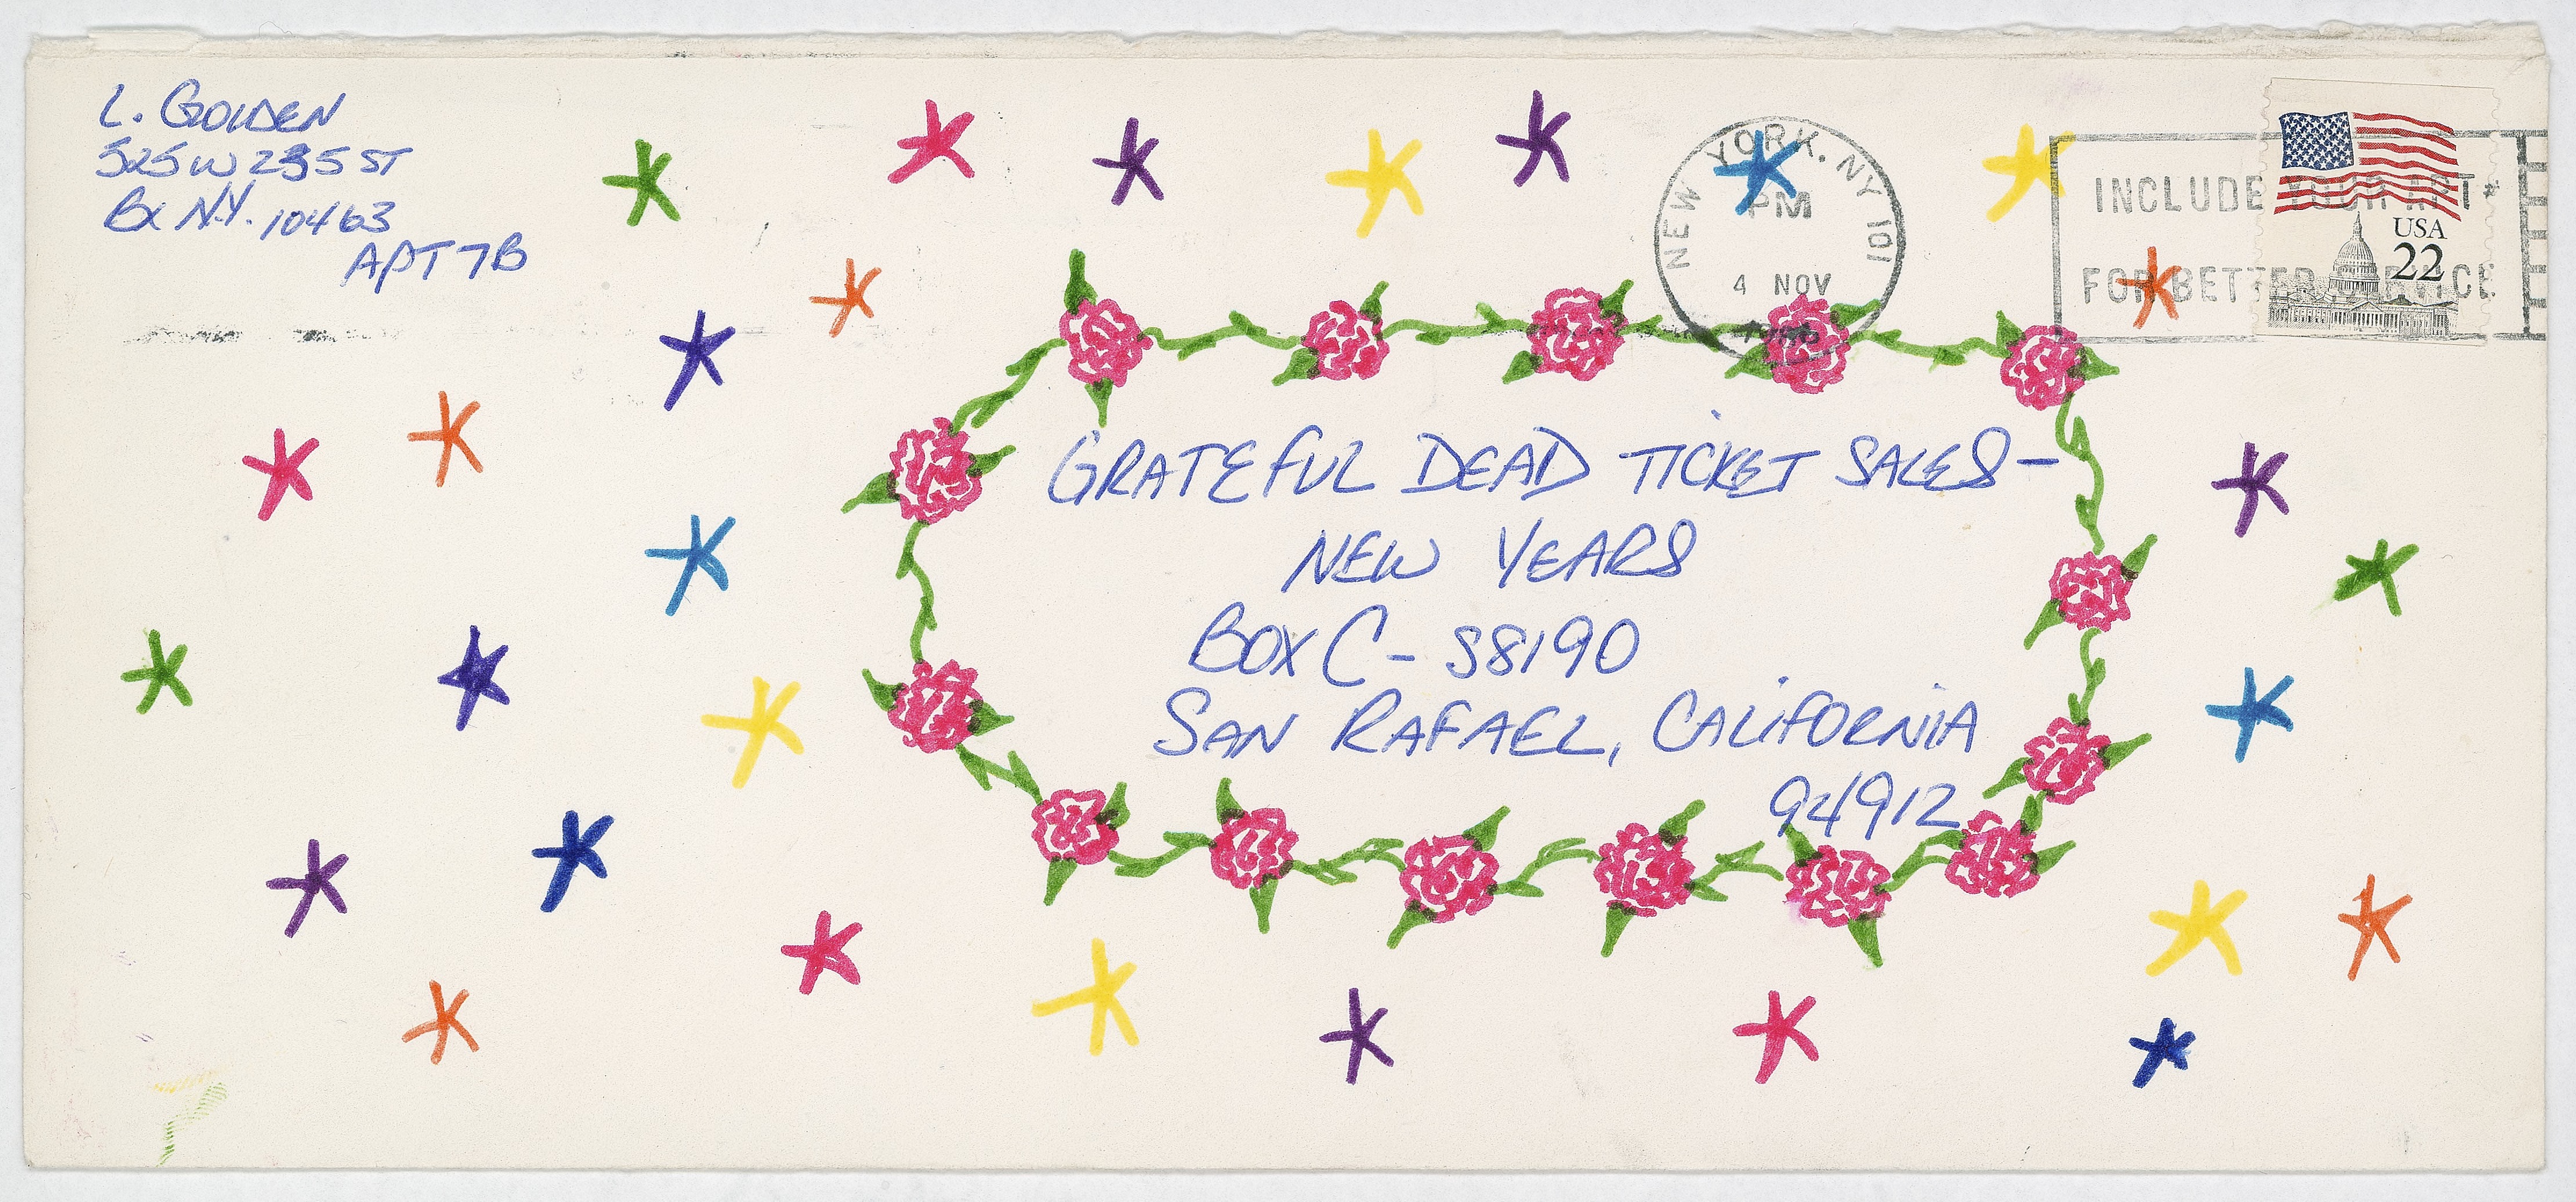 L. GOLDEN
525 W 235 ST
BX N.Y. 10463
APT 7B
NEW YORK. NY 101
PM
4 NOV
INCLUDE YOUR APT#
FOR BETTER SERVICE
USA
22
GRATEFUL DEAD TICKET SALES-
NEW YEARS
BOX C- S8190
SAN RAFAEL, CALIFORNIA
94912